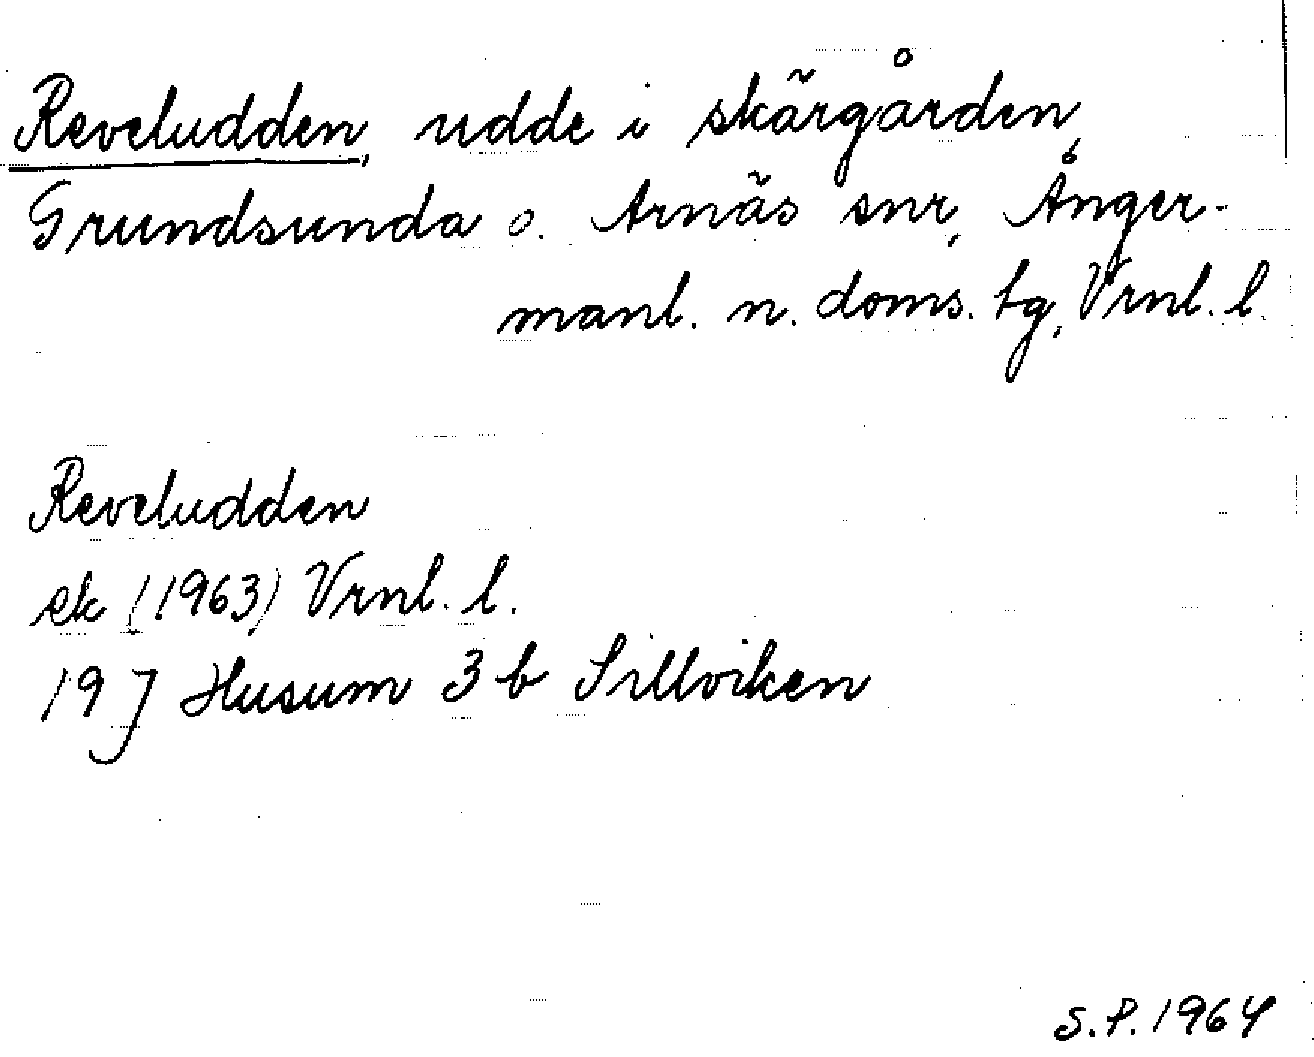 Reveludden, udde i skärgården,
Grundsunda o. Arnäs snr, Ånger-
manl. n. doms. tg, Vrnl. l.
Reveludden
ek (1963) Vrnl. l.
19 J Husum 3 b Sillviken
S.P. 1964